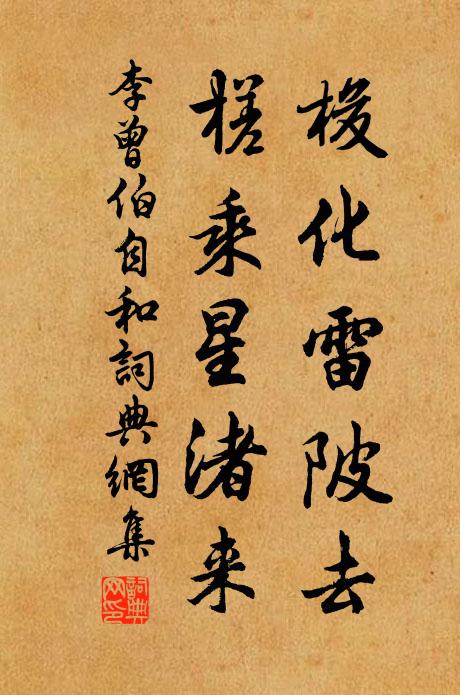 梭化雷陂去
槎乘星渚来
李曾伯自和詞典網集
詞典網印